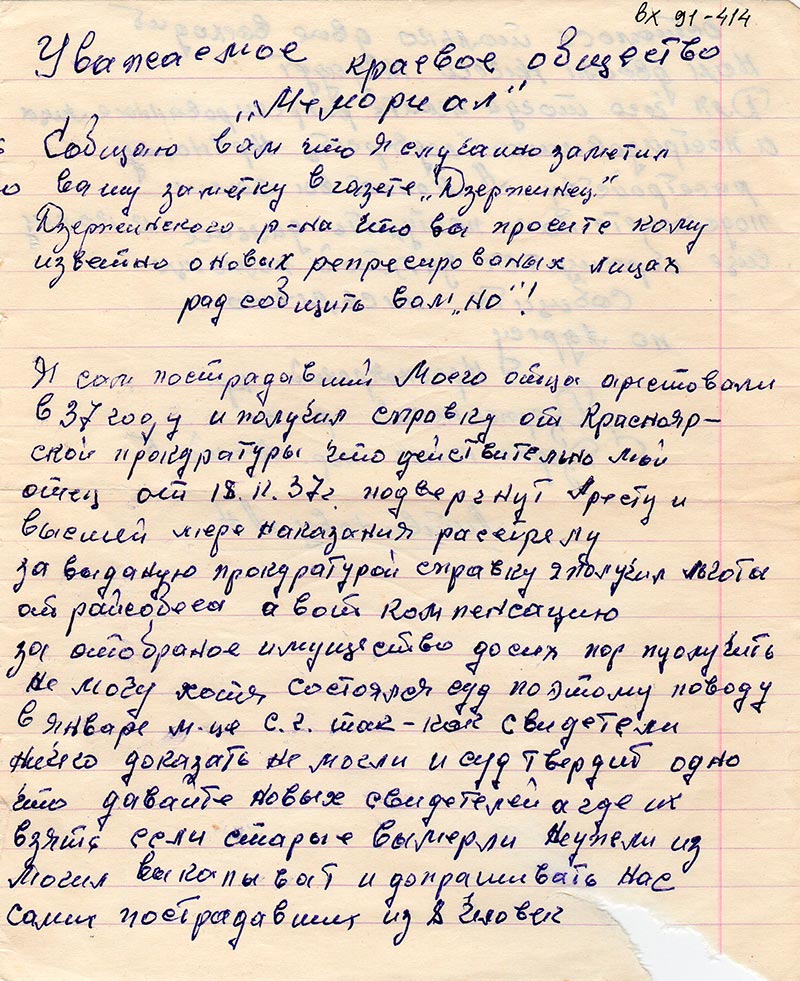 вх 91-414
Уважаемое краевое общество
"Мемориал"
Собщаю вам что я случайно заметил
вашу заметку в газете "Дзержинец"
Дзержинского р-на что вы просите кому
известно о новых репресированых лицах
рад собщить вам "но"!
Я сам пострадавший Моего отца арестовали
в 37 году и получил справку от Краснояр-
ской прокдратуры что действительно мой
отец от 18.11.37г. подвергнут Аресту и
высшей мере наказания расстрелу
за выданую прокдратурой справку я получил льготы
от райсобеса а вот компенсацию
за отобраное имущество досих пор пуолучить
не могу хотя состоялся суд поэтому поводу
в январе м-це с.г. так-как свидетели
ничего доказать не могли и суд твердит одно
что давайте новых свидетелей а где их
взять если старые вымерли Неужели из
могил выкапыват и допрашивать нас
самих пострадавших из 8 человек